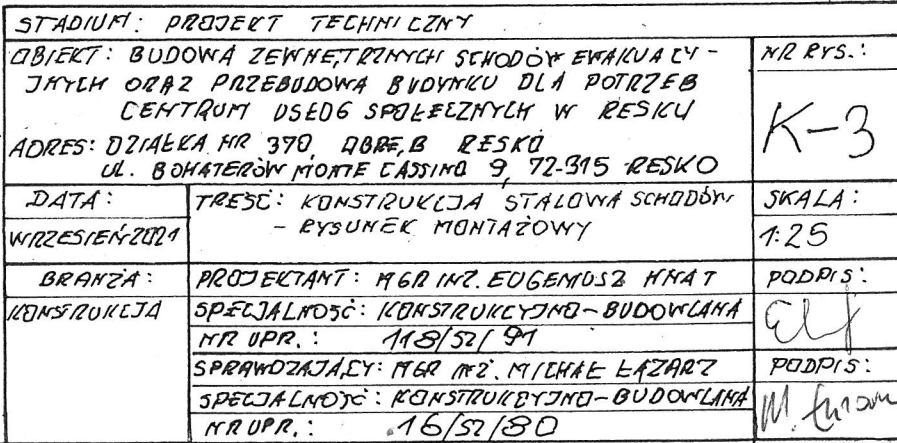 STADIUM: PROJEKT TECHNICZNY
OBIEKT: BUDOWA ZEWNĘTRZNYCH SCHODÓW EWAKUACY-
JNYCH ORAZ PRZEBUDOWA BUDYNKU DLA POTRZEB
CENTRUM USŁUG SPOŁECZNYCH W RESKU
ADRES: DZIAŁKA NR 370, OBRĘB RESKO
UL. BOHATERÓW MONTE CASSINO 9, 72-315 RESKO
NR RYS.:
K-3
DATA:
WRZESIEŃ 2021
TREŚĆ: KONSTRUKCJA STALOWA SCHODÓW
- RYSUNEK MONTAŻOWY
SKALA:
1:25
BRANŻA:
KONSTRUKCJA
PROJEKTANT: MGR INŻ. EUGENIUSZ HNAT
PODPIS:
SPECJALNOŚĆ: KONSTRUKCYJNO-BUDOWLANA
NR UPR.: 118/SZ/91
SPRAWDZAJĄCY: MGR INŻ. MICHAŁ ŁAZARZ
PODPIS:
SPECJALNOŚĆ: KONSTRUKCYJNO-BUDOWLANA
NR UPR.: 16/SZ/80